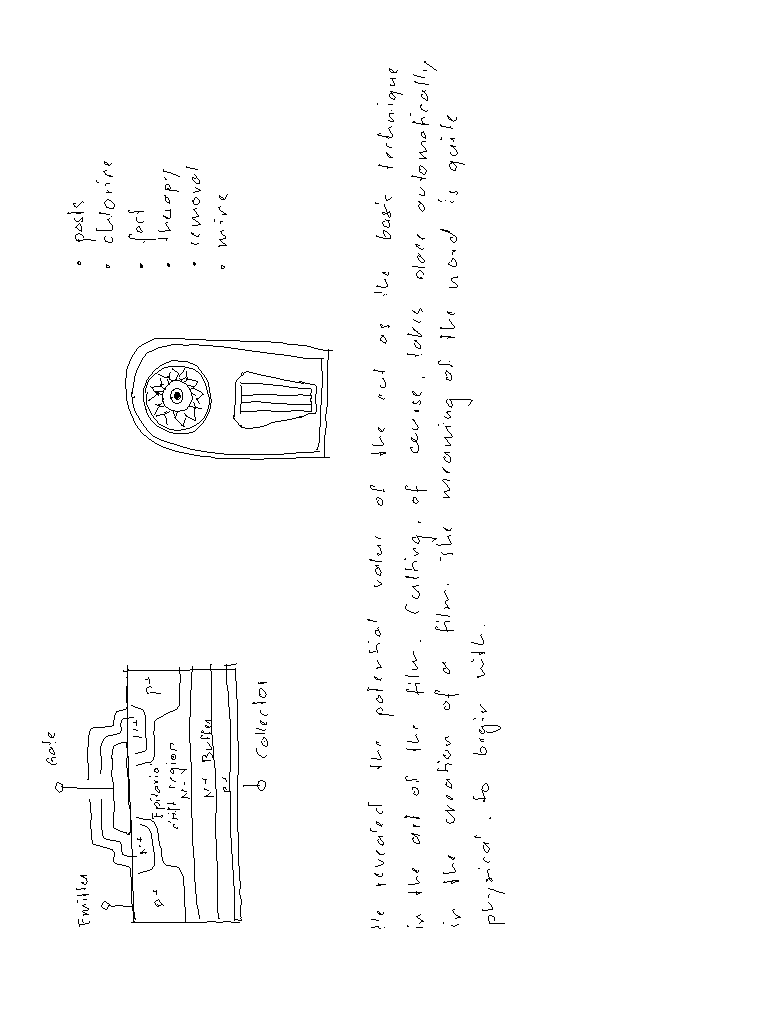 Emitter
Gate
P+
N+
N+
P+
Epitaxial
drift region
N-
N+ Buffer
P+
Collector
• posts
• chlorine
• fact
• therapy
• removal
• mine
He revealed the potential value of the cut as the basic technique
in the art of the film. Cutting, of course, takes place automatically
in the creation of a film. The meaning of the word is quite
physical, to begin with.